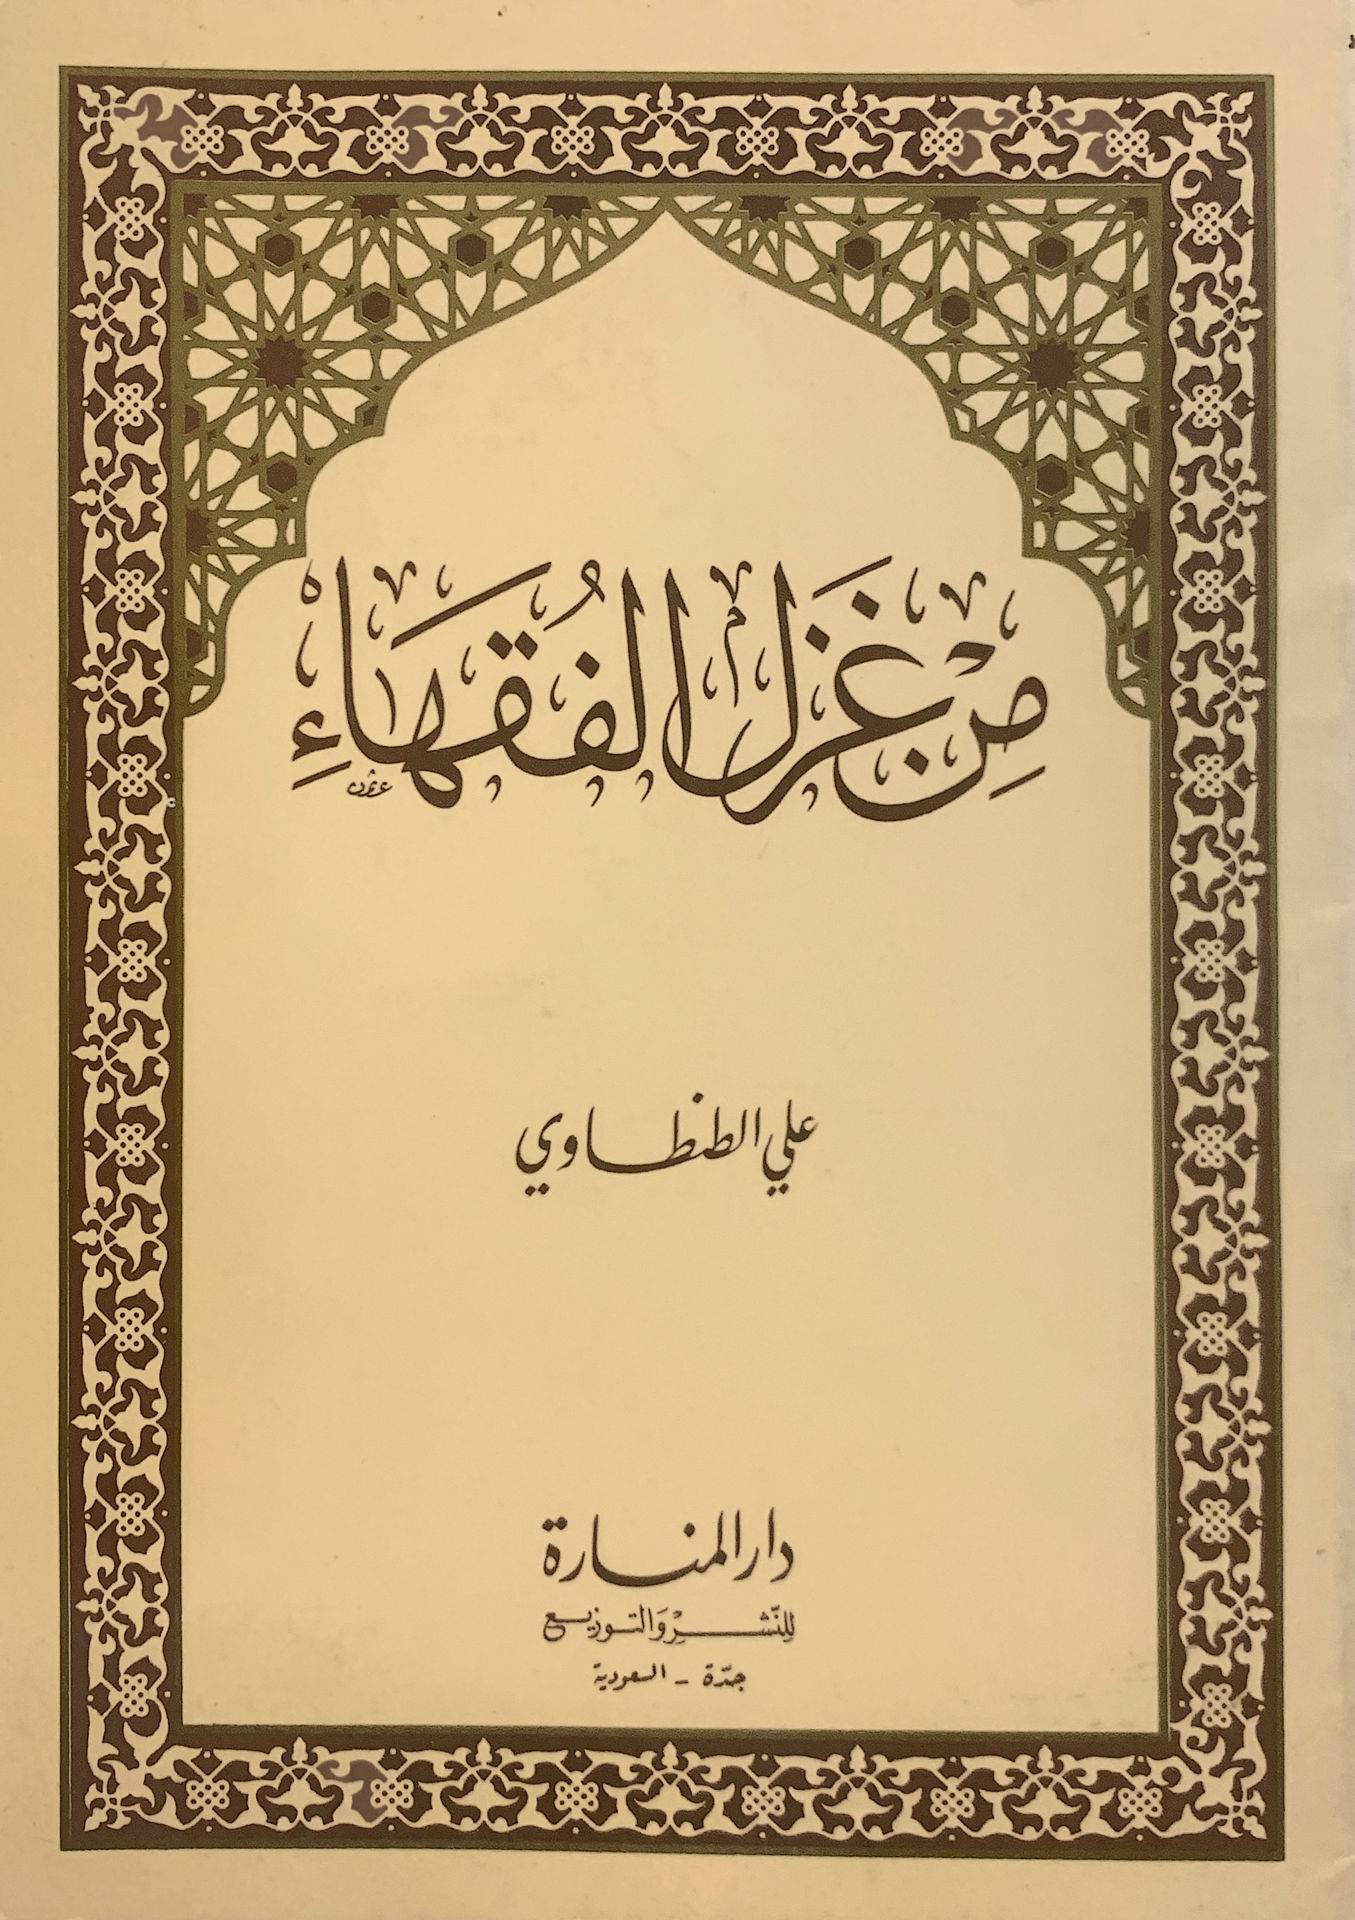 مِنْ غَزَلِ الفُقَهَاءِ
علي الطنطاوي
دار المنارة
للنّشْرِ وَالتوزيع
جدّة - السعودية